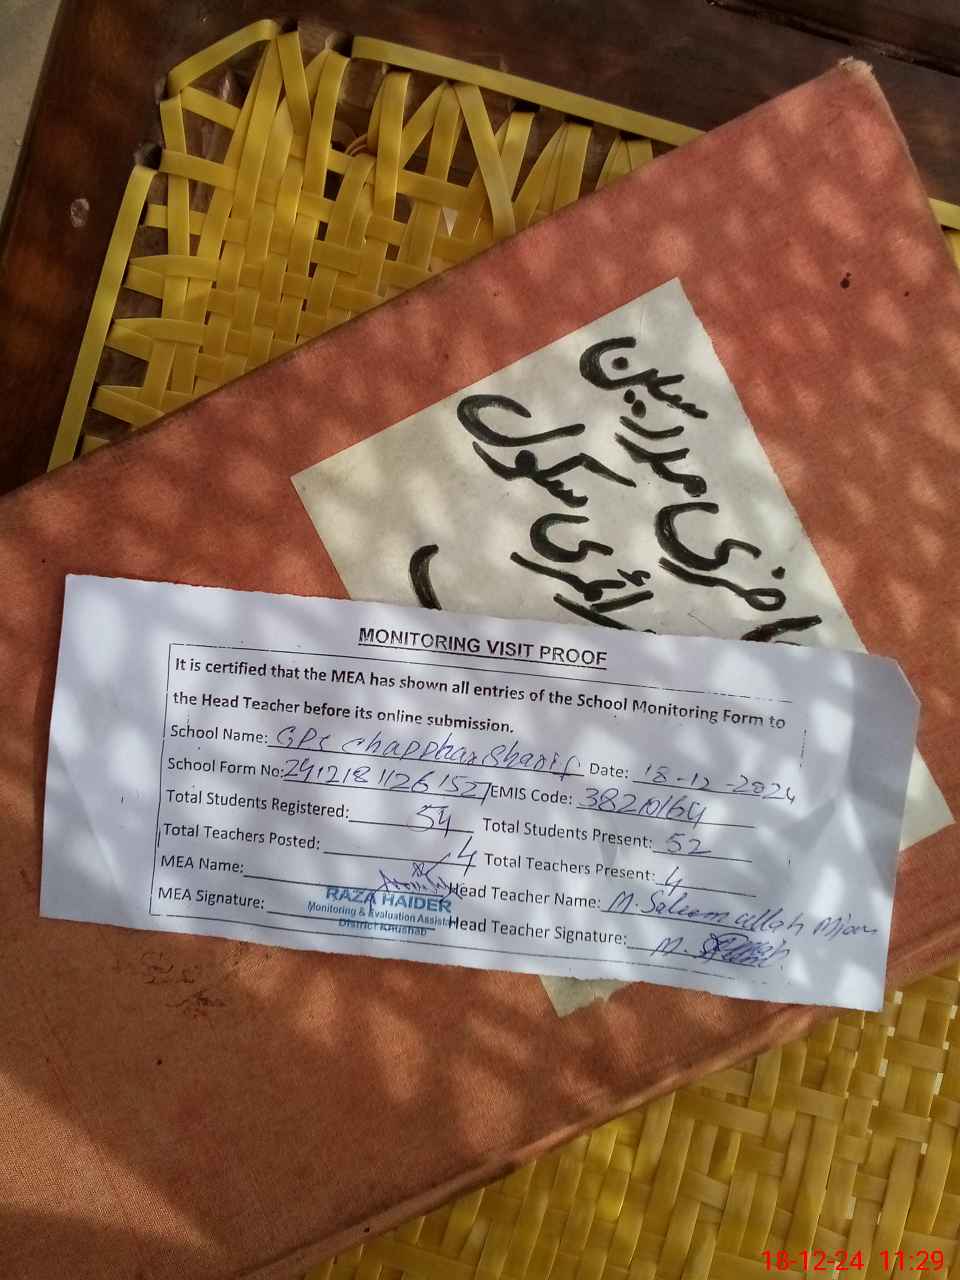 حاضری مدرسین
پرائمری سکول
MONITORING VISIT PROOF
It is certified that the MEA has shown all entries of the School Monitoring Form to
the Head Teacher before its online submission.
School Name: GPS Chapphar Sharif Date: 18-12-2024
School Form No: EMIS Code: 38210164
Total Students Registered: 54 Total Students Present: 52
Total Teachers Posted: 4 Total Teachers Present: 4
MEA Name: Head Teacher Name: M. Saleem ullah
MEA Signature: Head Teacher Signature: M.
RAZA HAIDER
Monitoring & Evaluation Assista
District Khushab
18-12-24 11:29